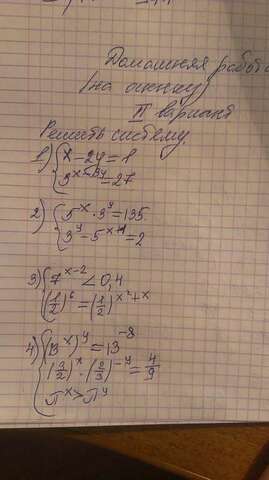 Домашняя работа
(на оценку)
II вариант
Решить систему.
1) { x - 2y = 1
3^{x - 3y} = 27
2) { 5^x · 3^y = 135
3^y - 5^{x+1} = 2
3) { 7^{x-2} < 0,4
(1/2)^6 = (1/2)^{x^2+x}
4) { (13^x)^y = 13^{-8}
(3/2)^x · (2/3)^{-y} = 4/9
π^x > π^y